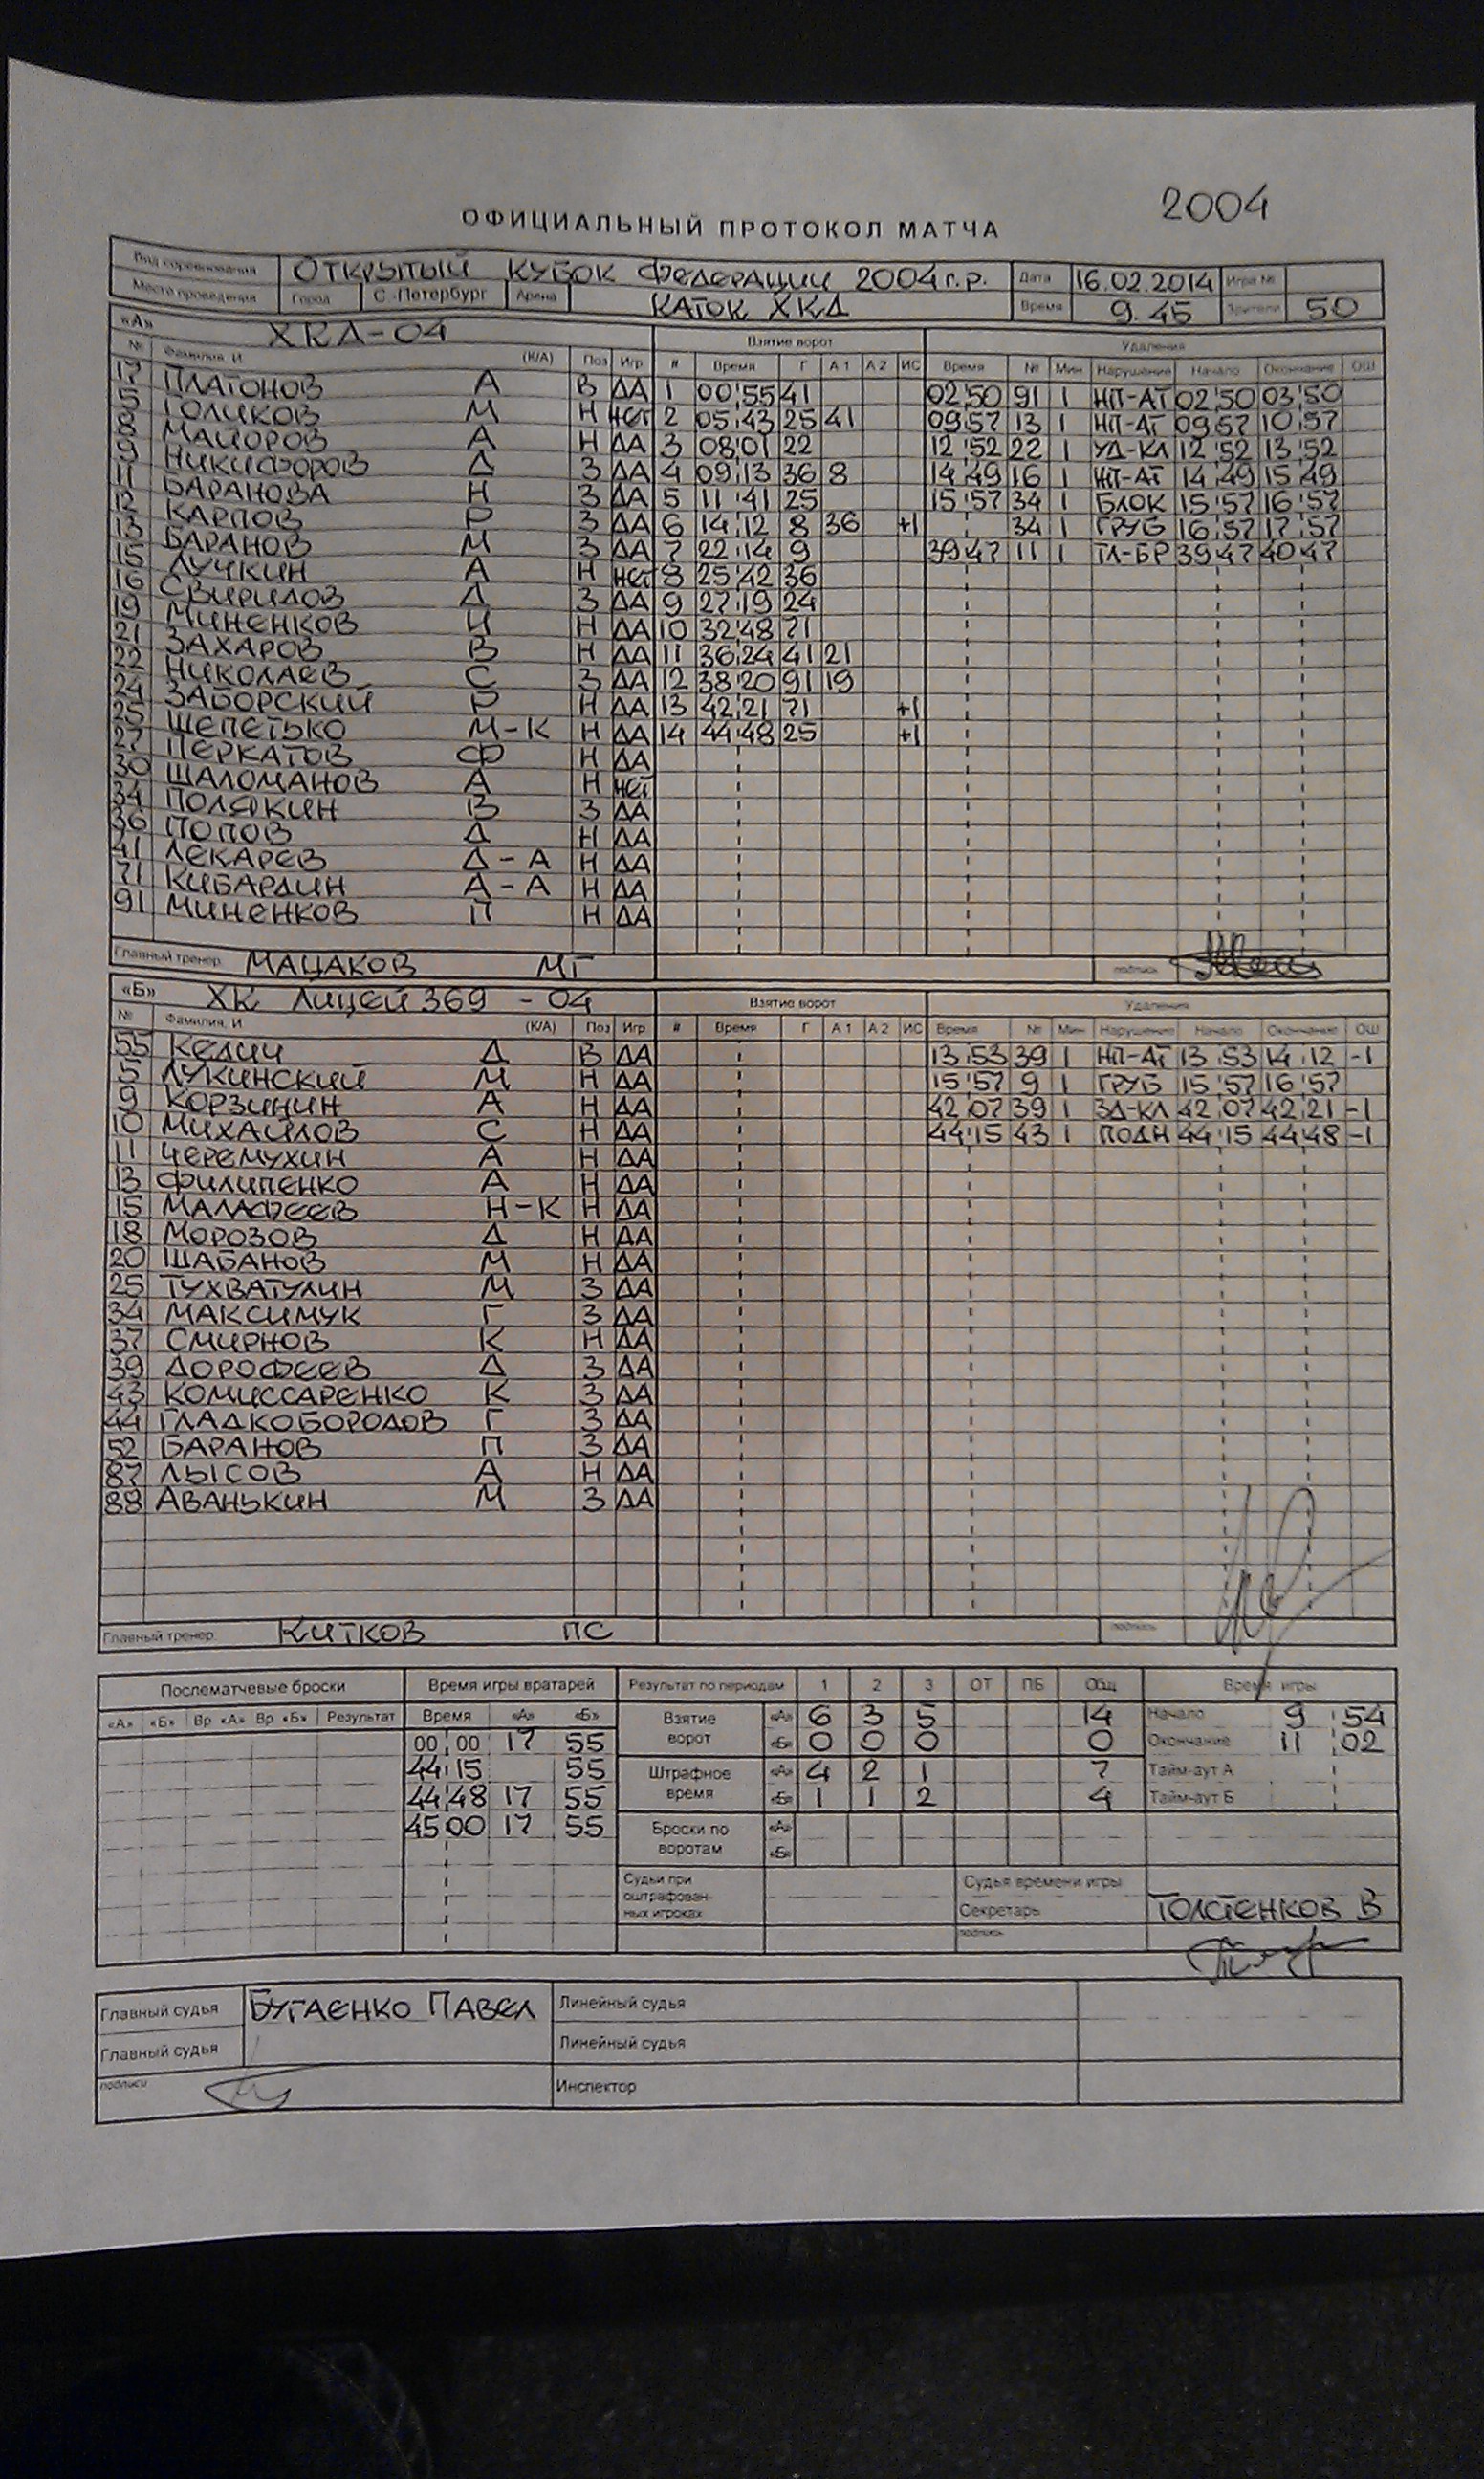 2004
ОФИЦИАЛЬНЫЙ ПРОТОКОЛ МАТЧА
Вид соревнования ОТКРЫТЫЙ КУБОК ФЕДЕРАЦИИ 2004 г.р. Дата 16.02.2014 Игра №
Место проведения Город С.-Петербург Арена КАТОК ХКД Время 9.45 Зрители 50
«А» ХКД-04 Взятие ворот Удаления
№ Фамилия, И (К/А) Поз Игр # Время Г А1 А2 ИС Время № Мин Нарушение Начало Окончание ОШ
17 ПЛАТОНОВ А В ДА 1 00:55 41 02:50 91 1 НП-АТ 02:50 03:50
5 ГОЛИКОВ М Н НЕТ 2 05:43 25 41 09:57 13 1 НП-АТ 09:57 10:57
8 МАЙОРОВ А Н ДА 3 08:01 22 12:52 22 1 УД-КЛ 12:52 13:52
9 НИКИФОРОВ Д З ДА 4 09:13 36 8 14:49 16 1 НП-АТ 14:49 15:49
11 БАРАНОВА Н З ДА 5 11:41 25 15:57 34 1 БЛОК 15:57 16:57
12 КАРПОВ Р З ДА 6 14:12 8 36 +1 34 1 ГРУБ 16:57 17:57
13 БАРАНОВ М З ДА 7 22:14 9 39:47 11 1 ТЛ-БР 39:47 40:47
15 ЛУЧКИН А Н НЕТ 8 25:42 36
16 СВИРИДОВ Д З ДА 9 27:19 24
19 МИНЕНКОВ И Н ДА 10 32:48 71
21 ЗАХАРОВ В Н ДА 11 36:24 41 21
22 НИКОЛАЕВ С З ДА 12 38:20 91 19
24 ЗАБОРСКИЙ Р Н ДА 13 42:21 71 +1
25 ЩЕПЕТЬКО М-К Н ДА 14 44:48 25 +1
27 ПЕРКАТОВ Ф Н ДА
30 ШАЛОМАНОВ А Н НЕТ
34 ПОЛЯКИН В З ДА
36 ПОПОВ Д Н ДА
41 ЛЕКАРЕВ Д-А Н ДА
71 КИБАРДИН А-А Н ДА
91 МИНЕНКОВ П Н ДА
Главный тренер МАЦАКОВ МГ подпись
«Б» ХК ЛИЦЕЙ 369 - 04 Взятие ворот Удаления
№ Фамилия, И (К/А) Поз Игр # Время Г А1 А2 ИС Время № Мин Нарушение Начало Окончание ОШ
55 КЕЛИЧ Д В ДА 13:53 39 1 НП-АТ 13:53 14:12 -1
5 ЛУКИНСКИЙ М Н ДА 15:57 9 1 ГРУБ 15:57 16:57
9 КОРЗИНИН А Н ДА 42:07 39 1 ЗД-КЛ 42:07 42:21 -1
10 МИХАЙЛОВ С Н ДА 44:15 43 1 ПОДН 44:15 44:48 -1
11 ЧЕРЕМУХИН А Н ДА
13 ФИЛИПЕНКО А Н ДА
15 МАЛАФЕЕВ Н-К Н ДА
18 МОРОЗОВ Д Н ДА
20 ШАБАНОВ М Н ДА
25 ТУХВАТУЛИН М З ДА
34 МАКСИМУК Г З ДА
37 СМИРНОВ К Н ДА
39 ДОРОФЕЕВ Д З ДА
43 КОМИССАРЕНКО К З ДА
44 ГЛАДКОБОРОДОВ Г З ДА
52 БАРАНОВ П З ДА
87 ЛЫСОВ А Н ДА
88 АВАНЬКИН М З ДА
Главный тренер КИТКОВ ПС подпись
Послематчевые броски Время игры вратарей Результат по периодам 1 2 3 ОТ ПБ Общ Время игры
«А» «Б» Вр «А» Вр «Б» Результат Время «А» «Б» Взятие ворот «А» 6 3 5 14 Начало 9:54
00:00 17 55 «Б» 0 0 0 0 Окончание 11:02
44:15 55 Штрафное время «А» 4 2 1 7 Тайм-аут А
44:48 17 55 «Б» 1 1 2 4 Тайм-аут Б
45:00 17 55 Броски по воротам «А»
«Б»
Судьи при оштрафованных игроках Судья времени игры
Секретарь ТОЛСТЕНКОВ В
подпись
Главный судья БУГАЕНКО ПАВЕЛ Линейный судья
Главный судья Линейный судья
подписи Инспектор